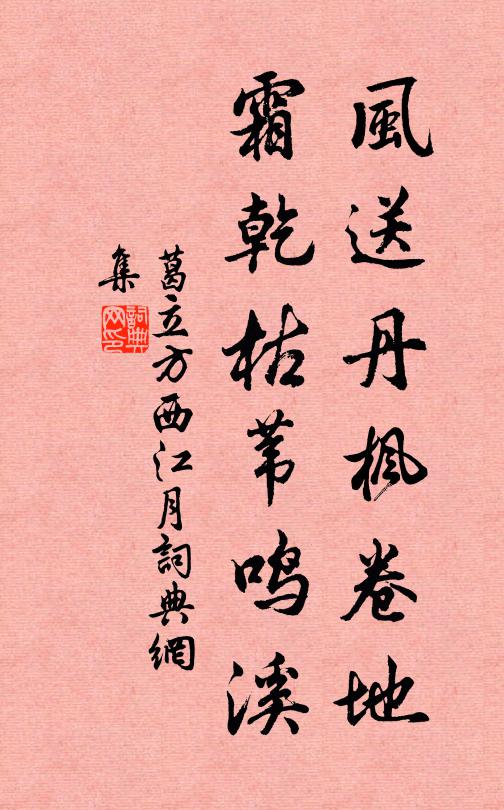 風送丹枫卷地
霜乾枯苇鸣溪
葛立方西江月詞典網
集
詞典网印